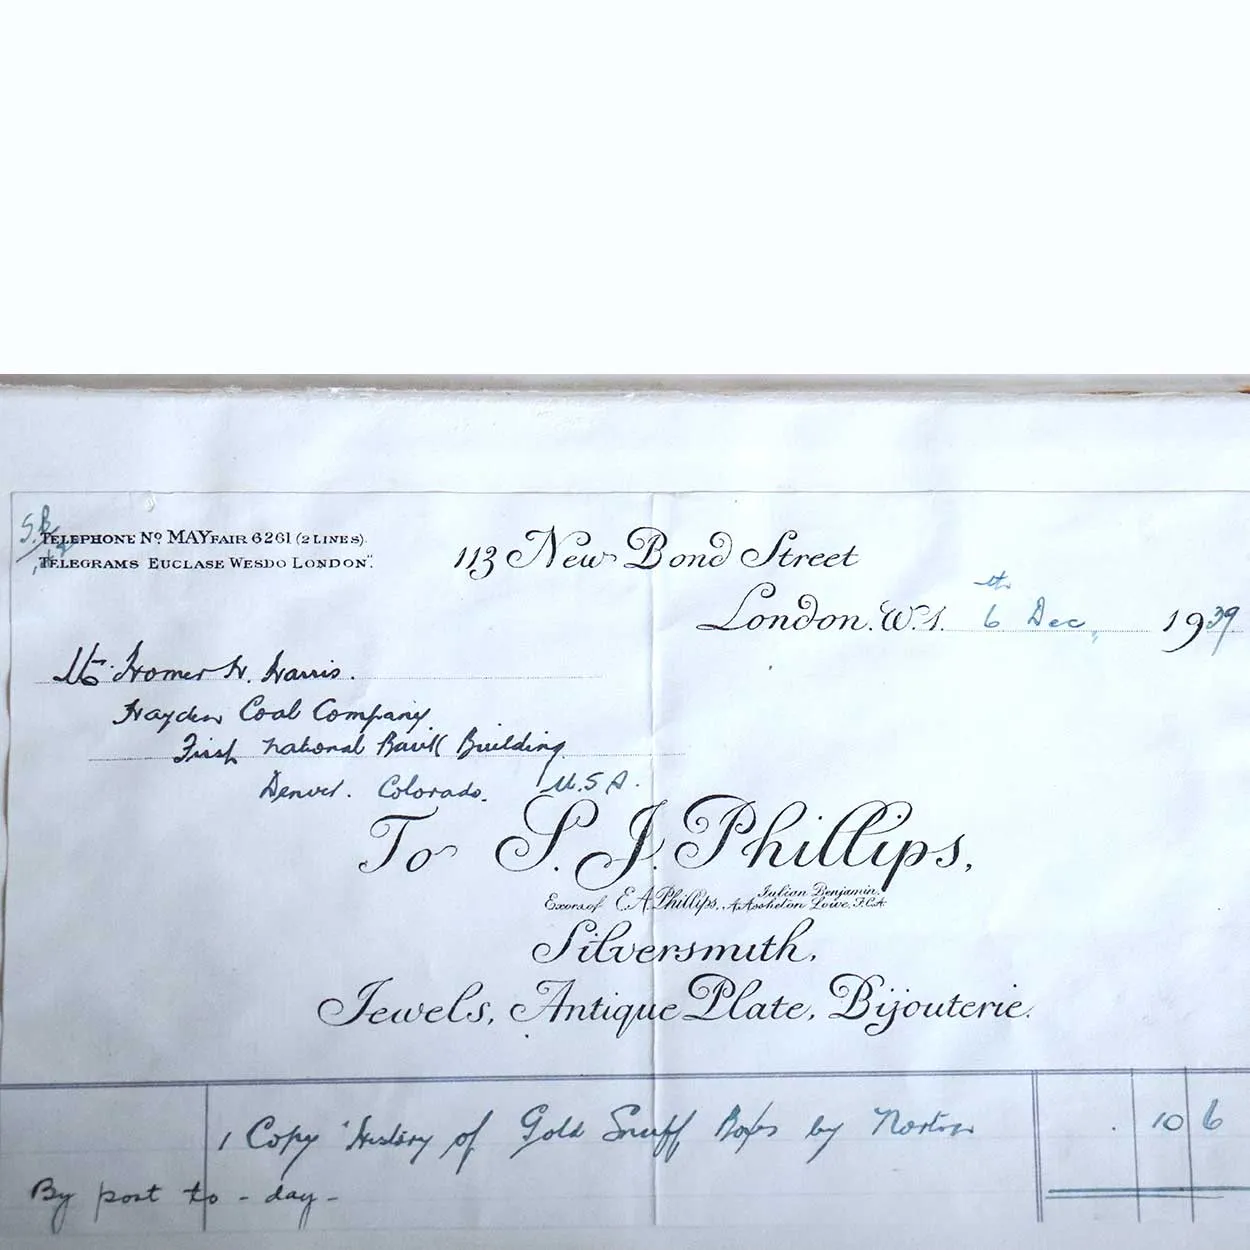 S.B.
TELEPHONE Nº MAYFAIR 6261 (2 LINES).
TELEGRAMS EUCLASE WESDO LONDON".
113 New Bond Street
London. W.1. 6th Dec, 1939
Homer W. Harris.
Hayden Coal Company.
First National Bank Building
Denver. Colorado. U.S.A.
To S. J. Phillips,
Exors of E.A. Phillips, Julian Benjamin, A. Assheton Lowe, F.C.A.
Silversmith,
Jewels, Antique Plate, Bijouterie.
1 Copy "History of Gold Snuff Boxes by Norton . 10 6
By post to-day-